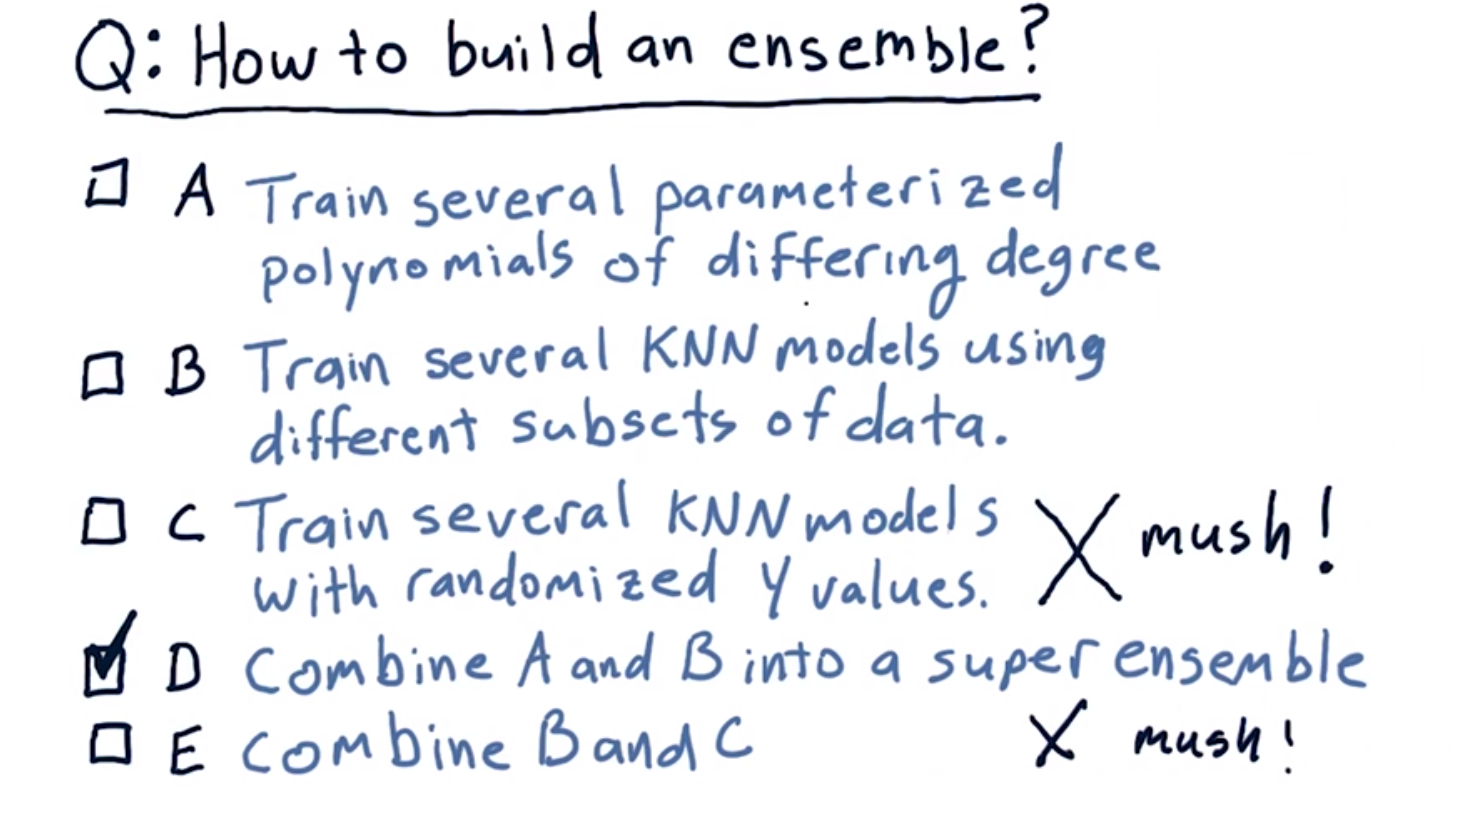 Q: How to build an ensemble?
A Train several parameterized
polynomials of differing degree
B Train several KNN models using
different subsets of data.
C Train several KNN models
with randomized Y values. X mush!
D Combine A and B into a super ensemble
E Combine B and C X mush!